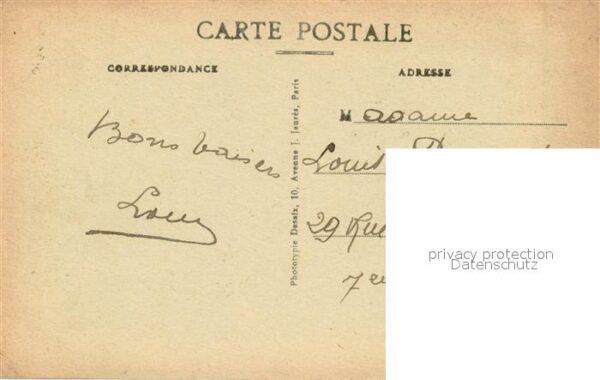 CARTE POSTALE
CORRESPONDANCE
ADRESSE
Bons baisers
Madame
Louis
29 Rue
7e
Phototypie Desaix, 10, Avenue J. Jaurès, Paris
privacy protection
Datenschutz